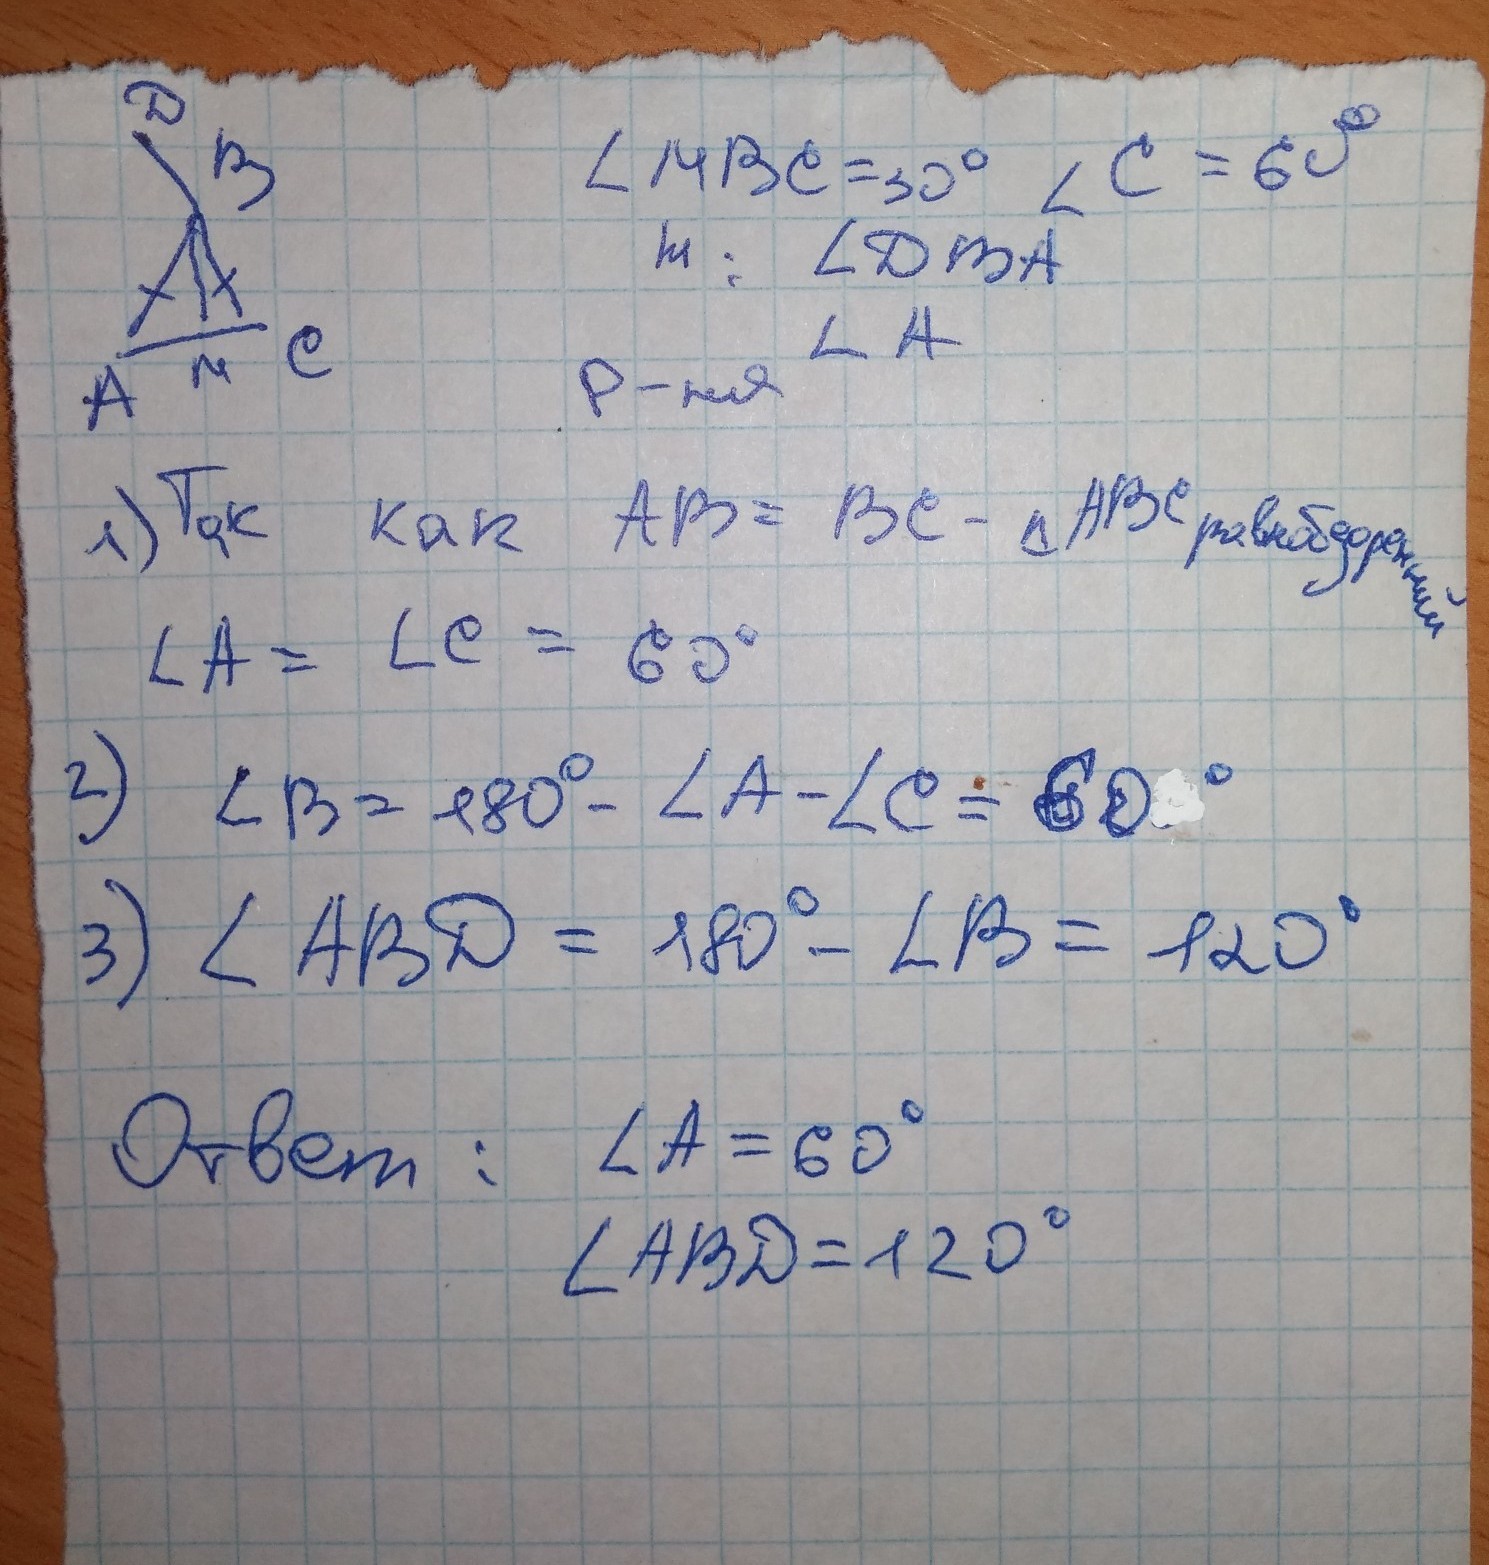 D
B
A M C
∠MBC=30° ∠C=60°
Н: ∠DBA
∠A
Р-ния
1) Так как AB=BC-△ABC равнобедренный
∠A= ∠C = 60°
2) ∠B=180°-∠A-∠C=60°
3) ∠ABD=180°-∠B=120°
Ответ: ∠A=60°
∠ABD=120°